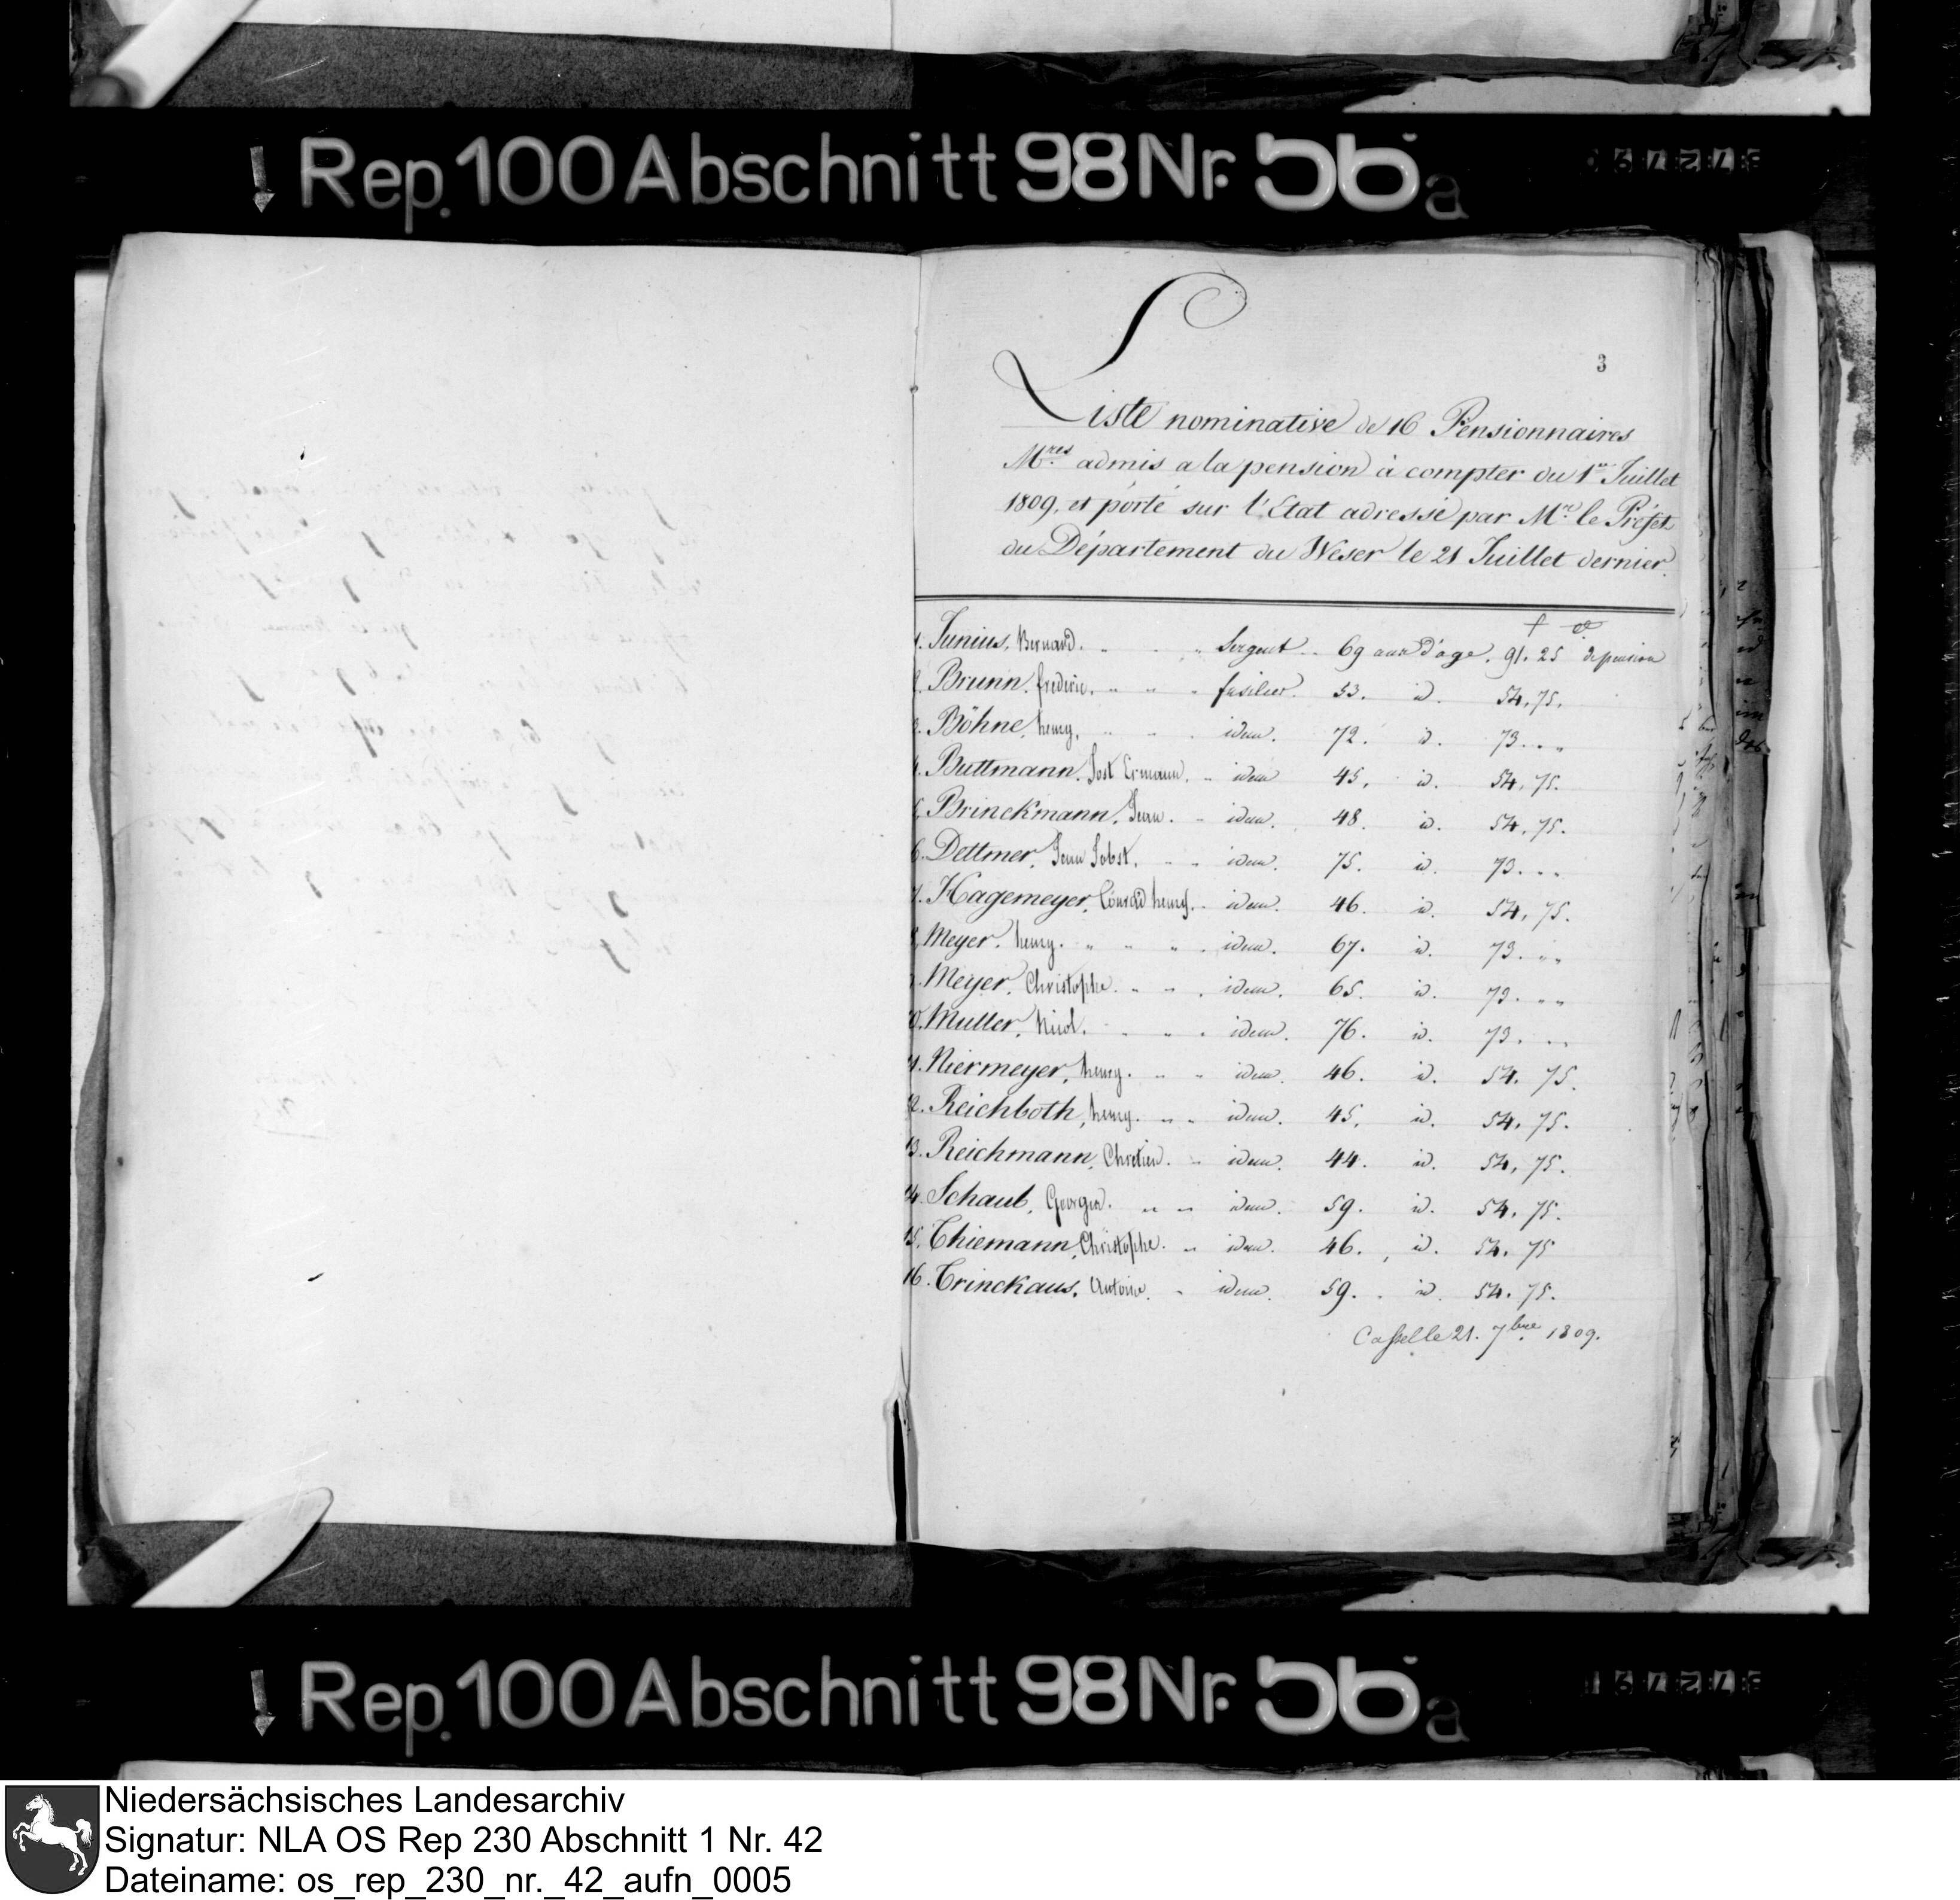 Rep. 100 Abschnitt 98 Nr. 56 a
3
Liste nominative de 16 Pensionnaires
Mres admis a la pension à compter du 1er Juillet
1809, et porté sur l'Etat adressé par Mr le Préfet
du Département du Weser le 21 Juillet dernier.
1. Junius, Bernard. Sergent 69 ans d'age. 91. 25 de pension
2. Brunn, frederic. fusilier. 53. id. 54, 75.
3. Böhne, henry. idem. 72. id. 73. " "
4. Buttmann, Jost Ermann. idem 45. id. 54, 75.
5. Brinckmann, Jean. idem. 48. id. 54, 75.
6. Dettmer, Jean Jobst. idem. 75. id. 73. " "
7. Hagemeyer, Conrad henry. idem. 46. id. 54, 75.
8. Meyer, henry. idem. 67. id. 73. " "
9. Meyer, Christophe. idem. 65. id. 73. " "
10. Muller, Nicol. idem. 76. id. 73. " "
11. Niermeyer, henry. idem. 46. id. 54. 75.
12. Reichboth, henry. idem. 45. id. 54. 75.
13. Reichmann, Chretien. idem. 44. id. 54, 75.
14. Schaub, Georges. idem. 59. id. 54. 75.
15. Thiemann, Christophe. idem. 46. id. 54. 75
16. Trinckaus, Antoine. idem. 59. id. 54. 75.
Cassel le 21. 7bre 1809.
Rep. 100 Abschnitt 98 Nr. 56 a
Niedersächsisches Landesarchiv
Signatur: NLA OS Rep 230 Abschnitt 1 Nr. 42
Dateiname: os_rep_230_nr._42_aufn_0005